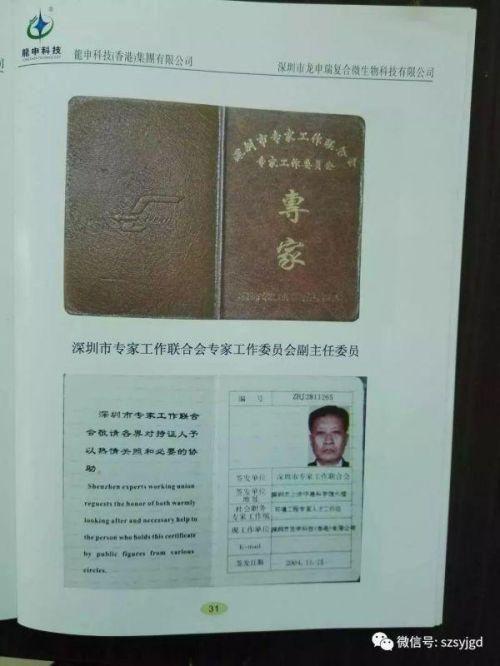 龍申科技
龍申科技(香港)集團有限公司
深圳市龙申瑞复合微生物科技有限公司
深圳市专家工作联合会
专家工作委员会
專家
深圳市专家工作联合会专家工作委员会副主任委员
深圳市专家工作联合
会敬请各界对持证人予
以热情关照和必要的协
助。
Shenzhen experts working union
requests the honor of both warmly
looking after and necessary help to
the person who holds this certificate
by public figures from various
circles.
编 号 ZRJ2811265
签发单位 深圳市专家工作联合会
签发单位
地址
社会职务
专家工作域
现工作单位
E-mail
签发日期 2004.11.25
31
微信号: szsyjgd